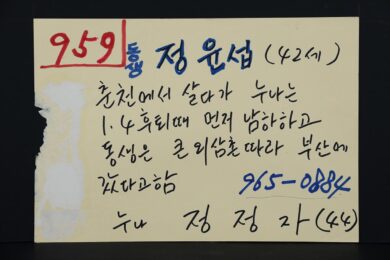 959 동생 정윤섭 (42세)
춘천에서 살다가 누나는
1.4후퇴때 먼저 남하하고
동생은 큰외삼촌따라 부산에
갔다고함
965-0884
누나 정정자 (44)